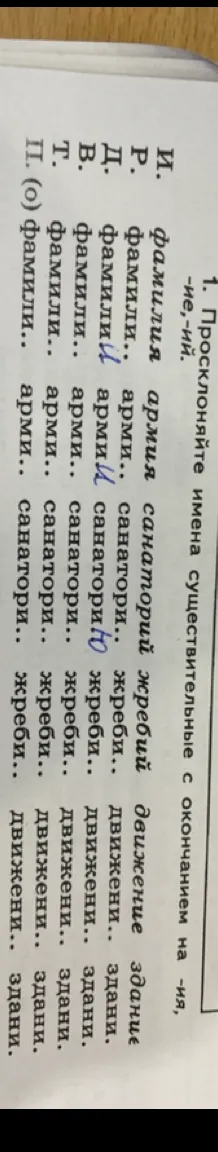 1. Просклоняйте имена существительные с окончанием на -ия,
-ие, -ий.
И. фамилия армия санаторий жребий движение здание
Р. фамили.. арми.. санатори.. жреби.. движени.. здани.
Д. фамилии армии санаторию жреби.. движени.. здани.
В. фамили.. арми.. санатори.. жреби.. движени.. здани.
Т. фамили.. арми.. санатори.. жреби.. движени.. здани.
П. (о) фамили.. арми.. санатори.. жреби.. движени.. здани.